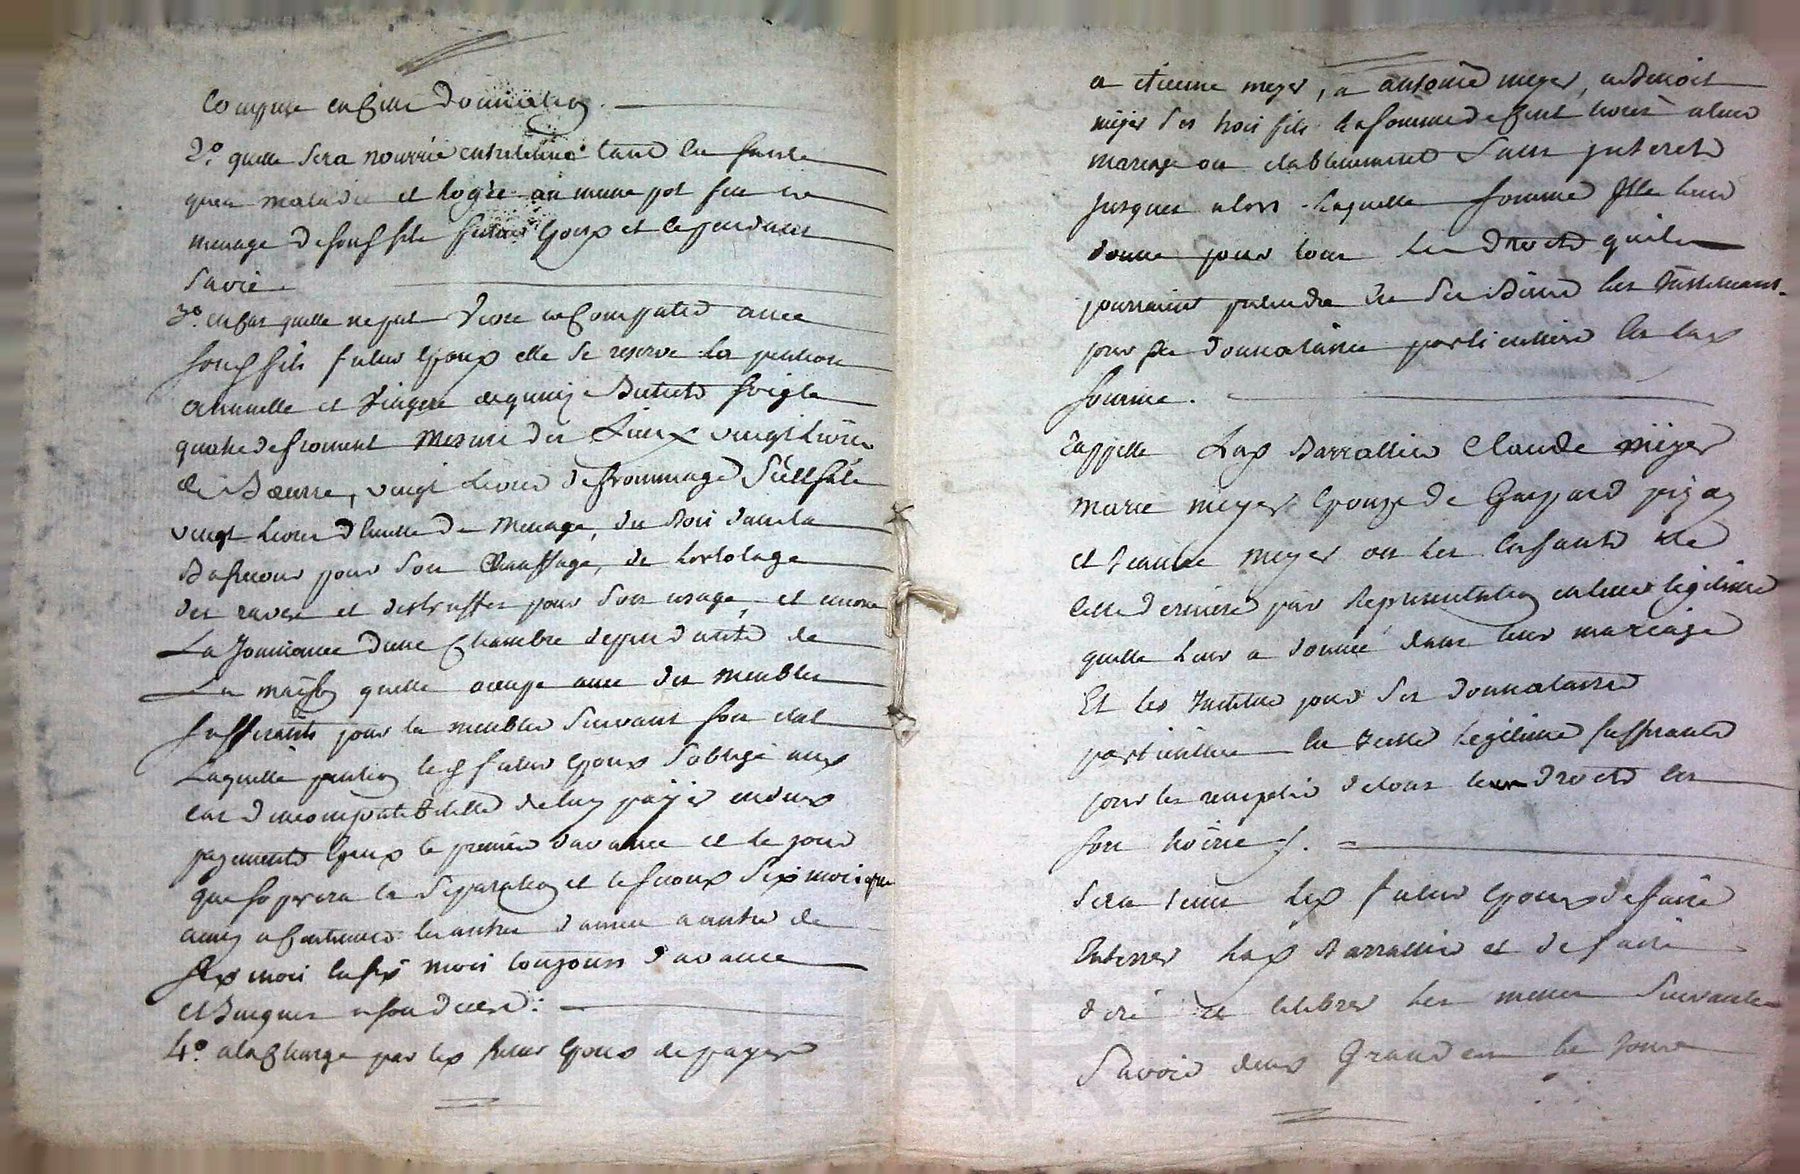 Comprise en cette Donnation.
2º quelle sera nourrie entretenue tant en santé
quen maladie et logée au meme pot feu et
menage de son fils futur Epoux et ce pendant
sa vie
3º en cas quelle ne put vivre en Compatir avec
son fils futur Epoux elle se reserve la pention
annuelle et viagere de quinze Bichets soigle
quatre de froment Mesure des Lieux vingt Livres
de Bœurre, vingt Livres de frommage
vingt Livres dhuille de Menage, du Bois dans la
pour son Chauffage, de hortolage
des raves et des truffes pour son usage, et encore
La Jouissance dune Chambre dependante de
La maison quelle occupe avec des meubles
suffisants pour la meubler suivant son etat
Laquelle pention led futur Epoux soblige aux
cas dincompatibilitté de luy payer en deux
payements Egaux le premier davance et le jour
que soperera la Separation et le second six mois apres
ainsi a Continuer les autres dannée a autre de
six mois en six mois toujours davance
et
4º a la Charge par led futur Epoux de payer
a etienne meyer, a antoine meyer, a Benoit
mejer ses trois fils la somme de Cent livres a leur
mariage ou etablissement sans jnterets
jusques alors. Laquelle somme Elle leur
donne pour tous les Droits quils
pourraient pretendre sur ses Biens les
pour ses donnataires particuliers en lad
somme.
rappelle Lad Barrallier Claude mejer
marie mejer Epouze de Gaspard
et jeanne meyer ou les Enfants de
Cette derniere par Representation en leur legitime
quelle leur a donnée dans leur mariage
Et les Institue pour ses donnataires
particuliers en icelle legitime suffisante
pour les remplir de tous leurs droits en
son hoirie /.
sera tenu led futur Epoux de faire
Enterrer Lad Barrallier et de faire
dire et celebrer les messes suivantes
Savoir deux Grandes le jour